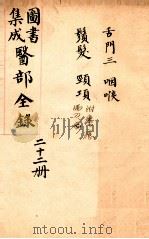 舌門三 咽喉
鬚髮 頸項
圖書
集成
醫部全錄
二十二册